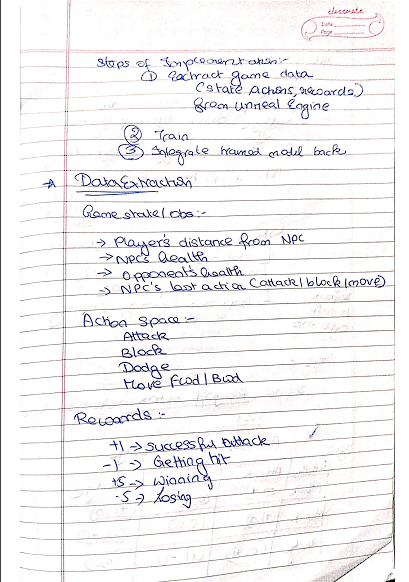 classmate
Date
Page
Steps of Implementation:-
① Extract game data
(state, Actions, rewards)
from Unreal Engine
② Train
③ Integrate trained model back
Data Extraction
Game state / obs:-
→ Player's distance from NPC
→ NPC's health
→ Opponent's health
→ NPC's last action (attack / block / move)
Action Space:-
Attack
Block
Dodge
Move Fwd / Bwd
Rewards:-
+1 → successful Attack
-1 → Getting hit
+5 → winning
-5 → Losing